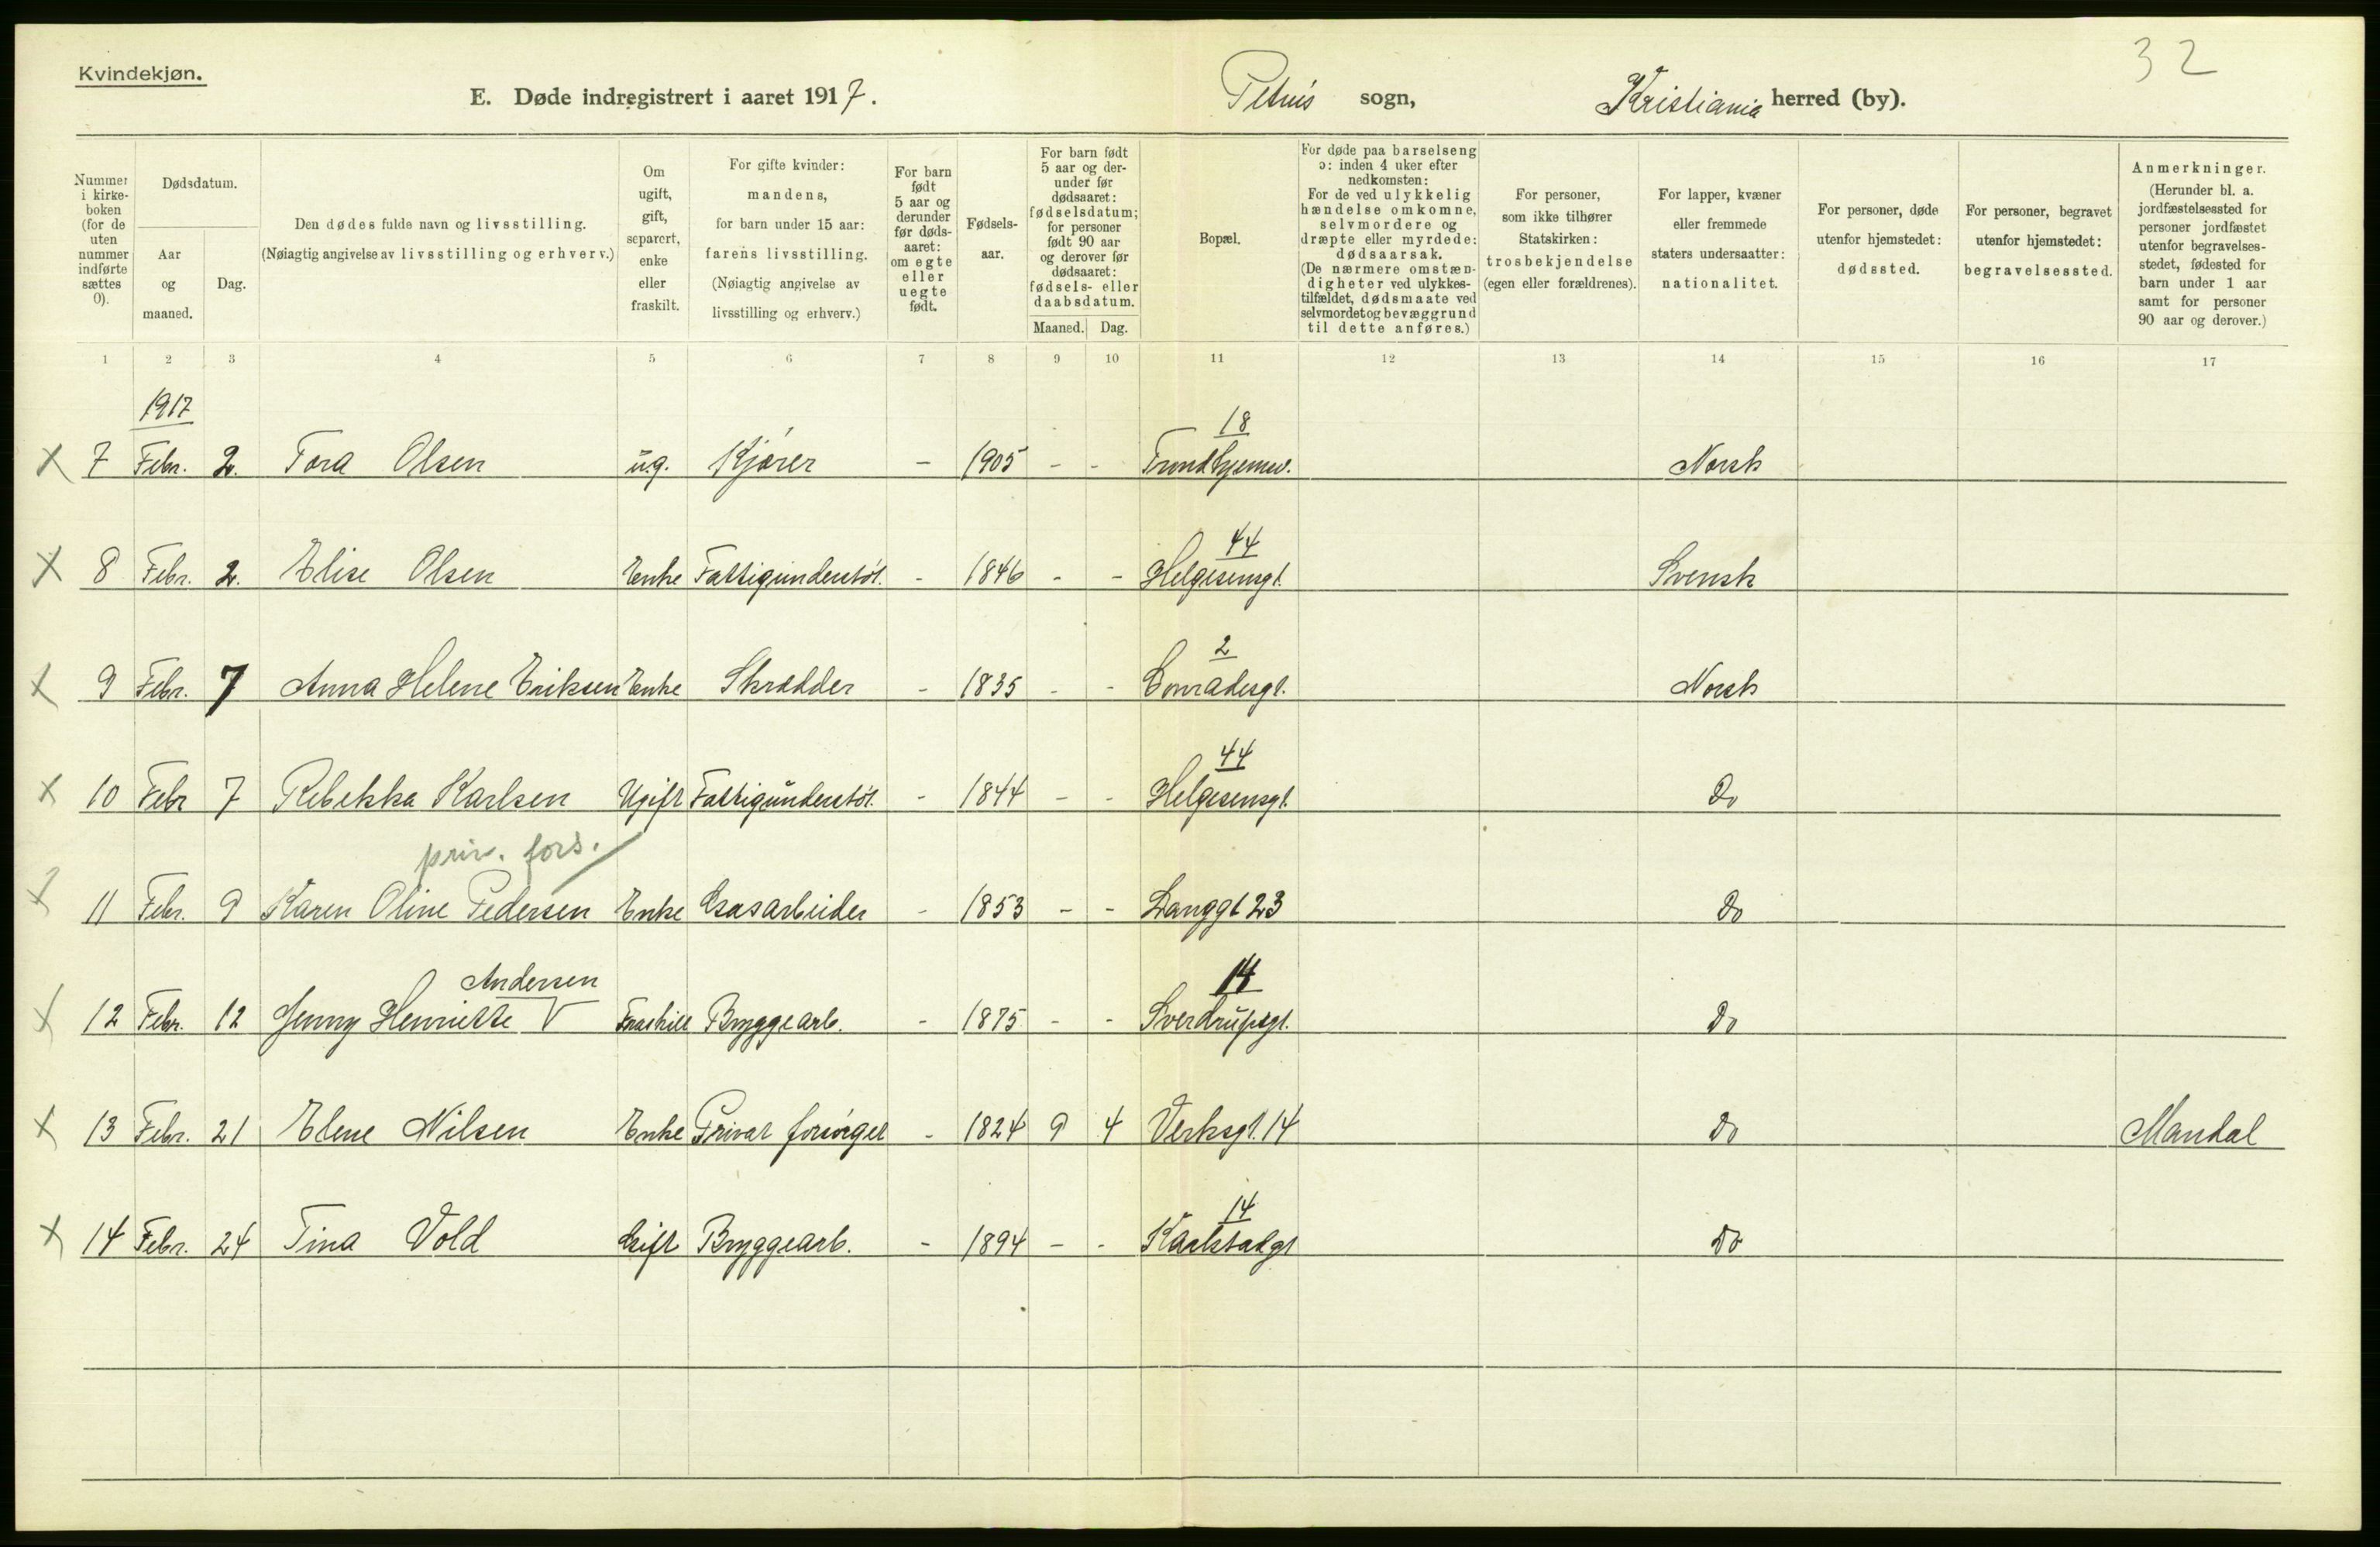 32
Kvindekjøn.
E. Døde indregistrert i aaret 1917.
Petrus sogn,
Kristiania herred (by).
Nummer i kirke-boken (for de uten nummer indførte sættes 0).
Dødsdatum.
Aar og maaned.
Dag.
Den dødes fulde navn og livsstilling.
(Nøiagtig angivelse av livsstilling og erhverv.)
Om ugift, gift, separert, enke eller fraskilt.
For gifte kvinder: mandens, for barn under 15 aar: farens livsstilling. (Nøiagtig angivelse av livsstilling og erhverv.)
For barn født 5 aar og derunder før døds-aaret: om egte eller uegte født.
Fødsels-aar.
For barn født 5 aar og der-under før dødsaaret: fødselsdatum; for personer født 90 aar og derover før dødsaaret: fødsels- eller daabsdatum.
Maaned. Dag.
Bopæl.
For døde paa barselseng ɔ: inden 4 uker efter nedkomsten: For de ved ulykkelig hændelse omkomne, selvmordere og dræpte eller myrdede: dødsaarsak. (De nærmere omstæn-digheter ved ulykkes-tilfældet, dødsmaate ved selvmordet og bevæggrund til dette anføres.)
For personer, som ikke tilhører Statskirken: trosbekjendelse (egen eller forældrenes).
For lapper, kvæner eller fremmede staters undersaatter: nationalitet.
For personer, døde utenfor hjemstedet: dødssted.
For personer, begravet utenfor hjemstedet: begravelsessted.
Anmerkninger. (Herunder bl. a. jordfæstelsessted for personer jordfæstet utenfor begravelses-stedet, fødested for barn under 1 aar samt for personer 90 aar og derover.)
1 2 3 4 5 6 7 8 9 10 11 12 13 14 15 16 17
1917
18
x 7 Febr. 2. Tora Olsen ug. Kjører - 1905 - - Trondhjemsv. Norsk
44
x 8 Febr. 2. Elise Olsen Enke Fattigunderstøt. - 1846 - - Helgesensgt. Svensk
2
x 9 Febr. 7 Anna Helene Eriksen Enke Skrædder - 1835 - - Conradesgt. Norsk
44
x 10 Febr 7 Rebekka Karlsen Ugift Fattigunderstøt. - 1844 - - Helgesensgt. Do
priv. fors.
x 11 Febr. 9 Karen Oline Pedersen Enke Gasarbeider - 1853 - - Langgt 23 Do
Andersen 14
x 12 Febr. 12 Jenny Henriette V Fraskilt Bryggearb. - 1875 - - Sverdrupsgt. Do
x 13 Febr. 21 Elene Nilsen Enke Privat forsørget - 1824 9 4 Verksgt. 14 Do Mandal
14
x 14 Febr. 24 Tina Vold Gift Bryggearb. - 1894 - - Karlstadgt Do